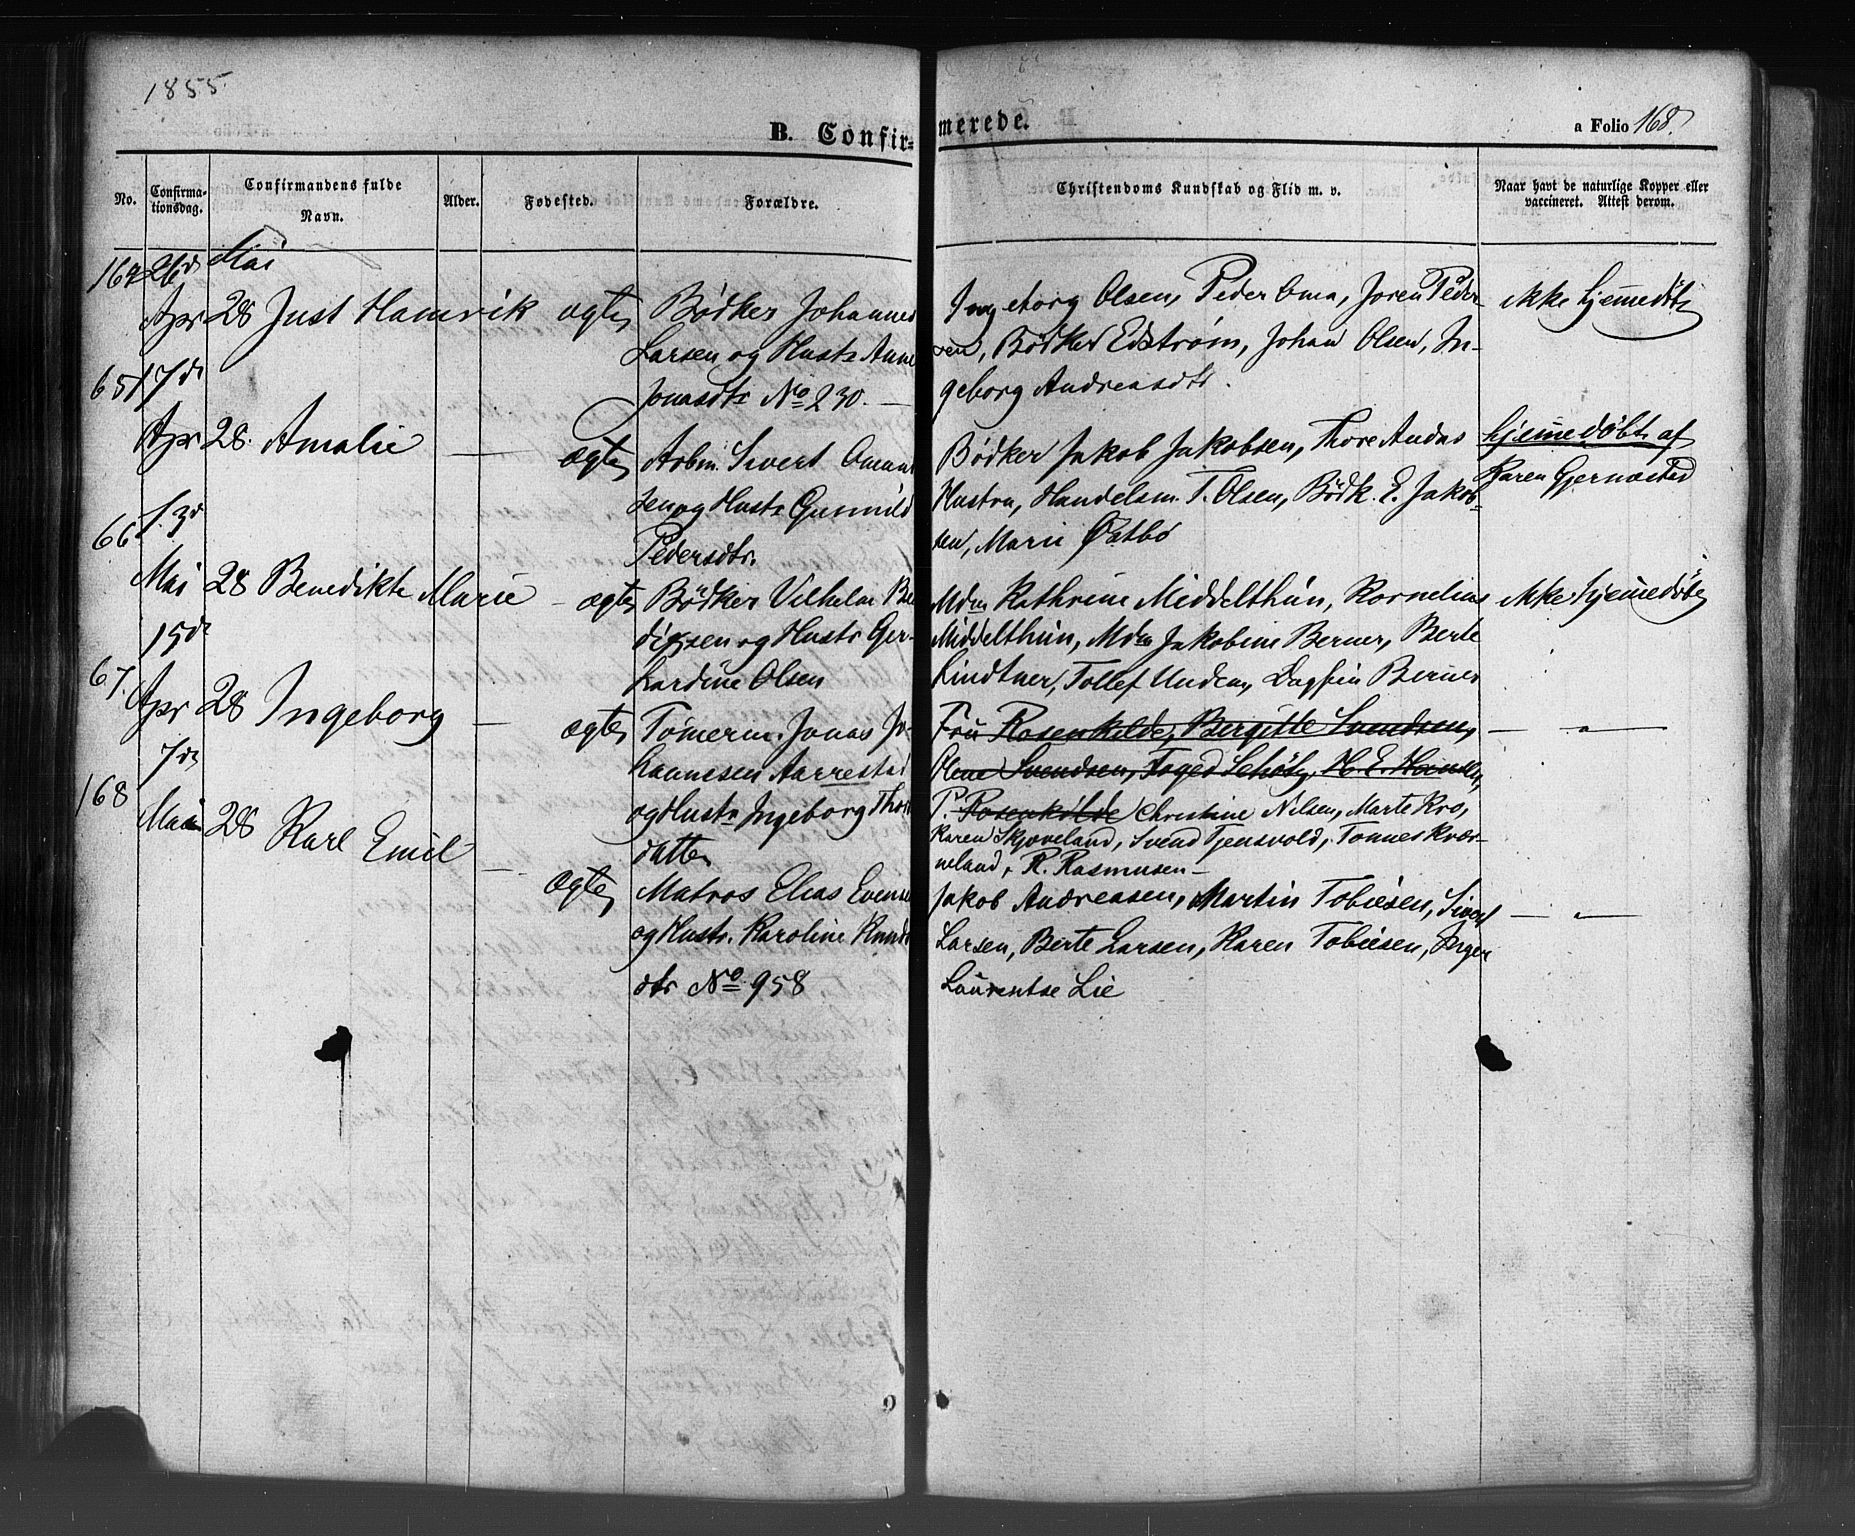 1855.
B. Confir-
merede.
a Folio 168.
No.
Confirma-
tionsdag.
Confirmandens fulde
Navn.
Alder.
Fødested.
Forældre.
Christendoms Kundskab og Flid m. v.
Naar havt de naturlige Kopper eller
vaccineret. Attest derom.
Mai
164 26de
Apr 28 Just Hamrik ægte Bødker Johannes
Larsen og Hustr Anne
Jonasdtr No 230. —
Ingeborg Olsen, Peder Oma, Joren Peder-
sen, Bødker Edström, Johan Olsen, In-
geborg Andreasdtr.
ikke hjemedöbt
65 17de
Apr 28. Amalie — ægte Arbm. Sivert Omund
sen og Hustr Gunnild
Pedersdtr.
Bødker Jakob Jakobsen, Thore Andas
Hustru, Handelsm. T. Olsen, Bödk. E. Jakob-
sen, Marie Østbö
hjemedøbt af
Karen Gjernæstad
66 13de
Mai 28 Benedikte Marie - ægte Bödker Vilhelm Be
dixsen og Hustr Ger-
hardine Olsen
Mdm Kathrine Middelthün, Kornelius
Middelthün, Mdm Jakobine Berner, Berte
Lindtner, Tollef Undem, Dagfin Berner
ikke hjemedöbt
15de
67. Apr 28 Ingeborg — ægte Tömerm. Jonas Jo-
hannesen Aarrestad
og Hustr Ingeborg Thors
datter
Fru Rosenkilde, Bergitte Svendsen,
Olene Svendsen, Foged Schötz, H. E. Hansen,
P. Rosenkilde Christine Nilsen, Marte Kro,
Karen Skjæveland, Svend Tjensvold, Tonnes Kvær-
neland, R. Rasmusen —
— " —
7de
168 Mai 28 Karl Emil — ægte Matros Elias Evense
og Hustr. Karoline Knuds
dtr No. 958
Jakob Andreasen, Martin Tobiesen, Sivert
Larsen, Berte Larsen, Karen Tobiesen, Inger
Laurentse Lie
— " —